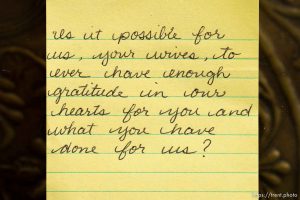 res it possible for
us, your wives, to
ever have enough
gratitude in our
hearts for you and
what you have
done for us?